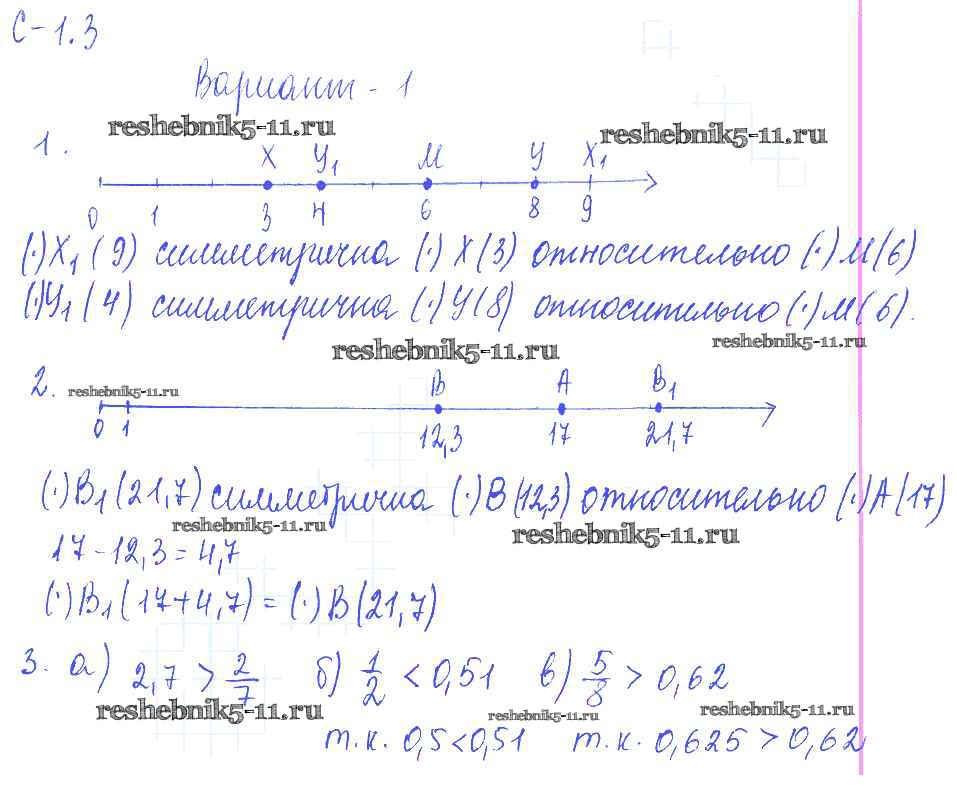 С-1.3
Вариант - 1
reshebnik5-11.ru
reshebnik5-11.ru
1.
X У₁ М У X₁
0 1 3 4 6 8 9
(·)X₁(9) симметрична (·)X(3) относительно (·)М(6)
(·)У₁(4) симметрична (·)У(8) относительно (·)М(6).
reshebnik5-11.ru
reshebnik5-11.ru
2.
reshebnik5-11.ru
В А В₁
0 1 12,3 17 21,7
(·)В₁(21,7) симметрична (·)В(12,3) относительно (·)А(17)
reshebnik5-11.ru
reshebnik5-11.ru
17-12,3=4,7
(·)В₁(17+4,7)=(·)В(21,7)
3. а) 2,7 > 2/7 б) 1/2 < 0,51 в) 5/8 > 0,62
reshebnik5-11.ru
reshebnik5-11.ru
reshebnik5-11.ru
т.к. 0,5<0,51 т.к. 0,625 > 0,62